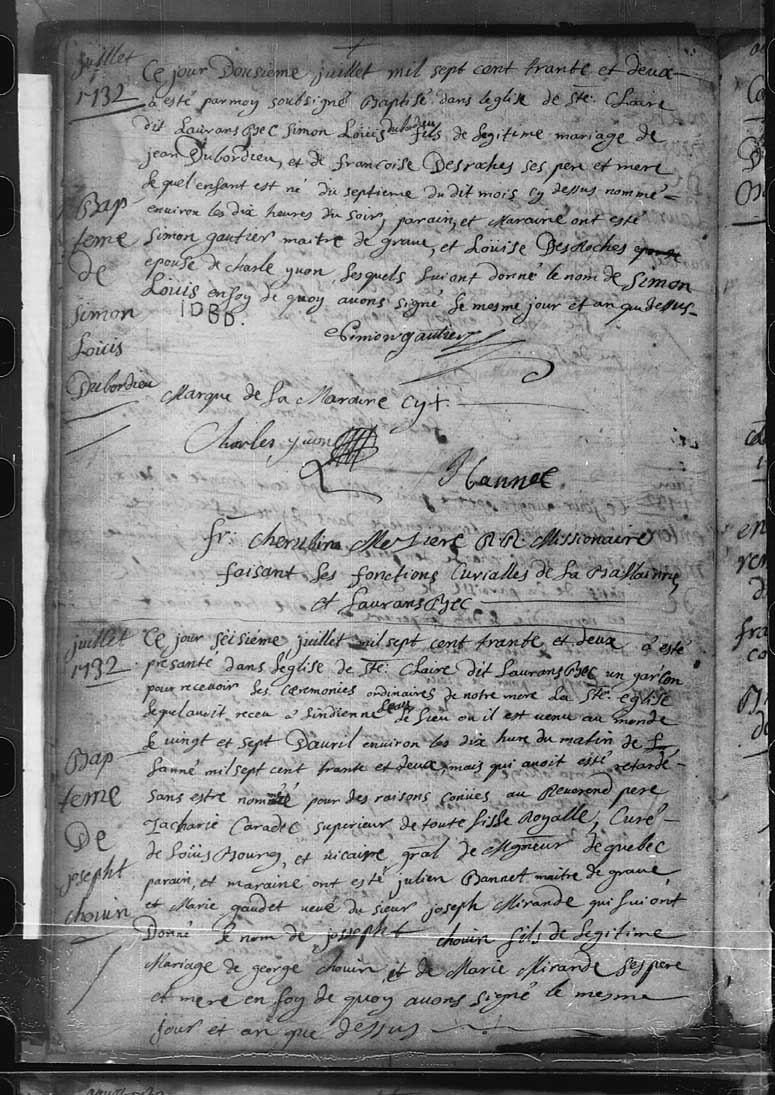 juillet
1732
Ce jour Dousieme juillet mil sept cent trante et deux
a esté par moy soubsigné Baptisé dans leglise de Ste. Claire
dit Laurans Bec Simon Louis dubordieu fils de legitime mariage de
jean Dubordieu, et de francoise Desroches ses pere et mere
lequel enfant est né du septieme du dit mois cy dessus nommé
environ les dix heures du soir, parain, et Maraine ont esté
Simon gautier maitre de grave, et Louise Desroches epouse
epouse de charle yvon, lesquels lui ont donné le nom de Simon
Louis en foy de quoy avons signé le mesme jour et an que dessus
Bap
teme
de
Simon
Louis
Dubordieu
IDBD.
Simon gautier
Marque de la Maraine cy +.
Charles yvon
Bannet
fr. cherubin Mesiere R.R. Missionaire
faisant les fonctions Curialles de la Ballainne,
et Laurans Bec
juillet
1732
Ce jour séisiéme juillet mil sept cent trante et deux a esté
présanté dans leglise de Ste. Claire dit Laurans Bec un garson
pour recevoir les Cœremonies ordinaires de notre mere La Ste. eglise
lequel avoit receu a lindienne leau de lieu ou il est venu au monde
le vingt et sept Davril environ les dix hure du matin de L
lanné mil sept cent trante et deux, mais qui avoit esté retardé
sans estre nommé pour des raisons conües au Reverend pere
Zacharie Caradec superieur de toute lisle Royalle, Curé
de Loüisbourg, et vicaire gral de Mgneur de quebec
parain, et maraine ont esté julien Bannet maitre de grave
et Marie gaudet veuve du sieur joseph Mirande qui lui ont
Donné le nom de josepht chouin fils de legitime
Mariage de george Chouin, et de Marie Mirande ses pere
et mere en foy de quoy avons signé le mesme
jour et an que dessus
Bap
teme
De
josepht
chouin